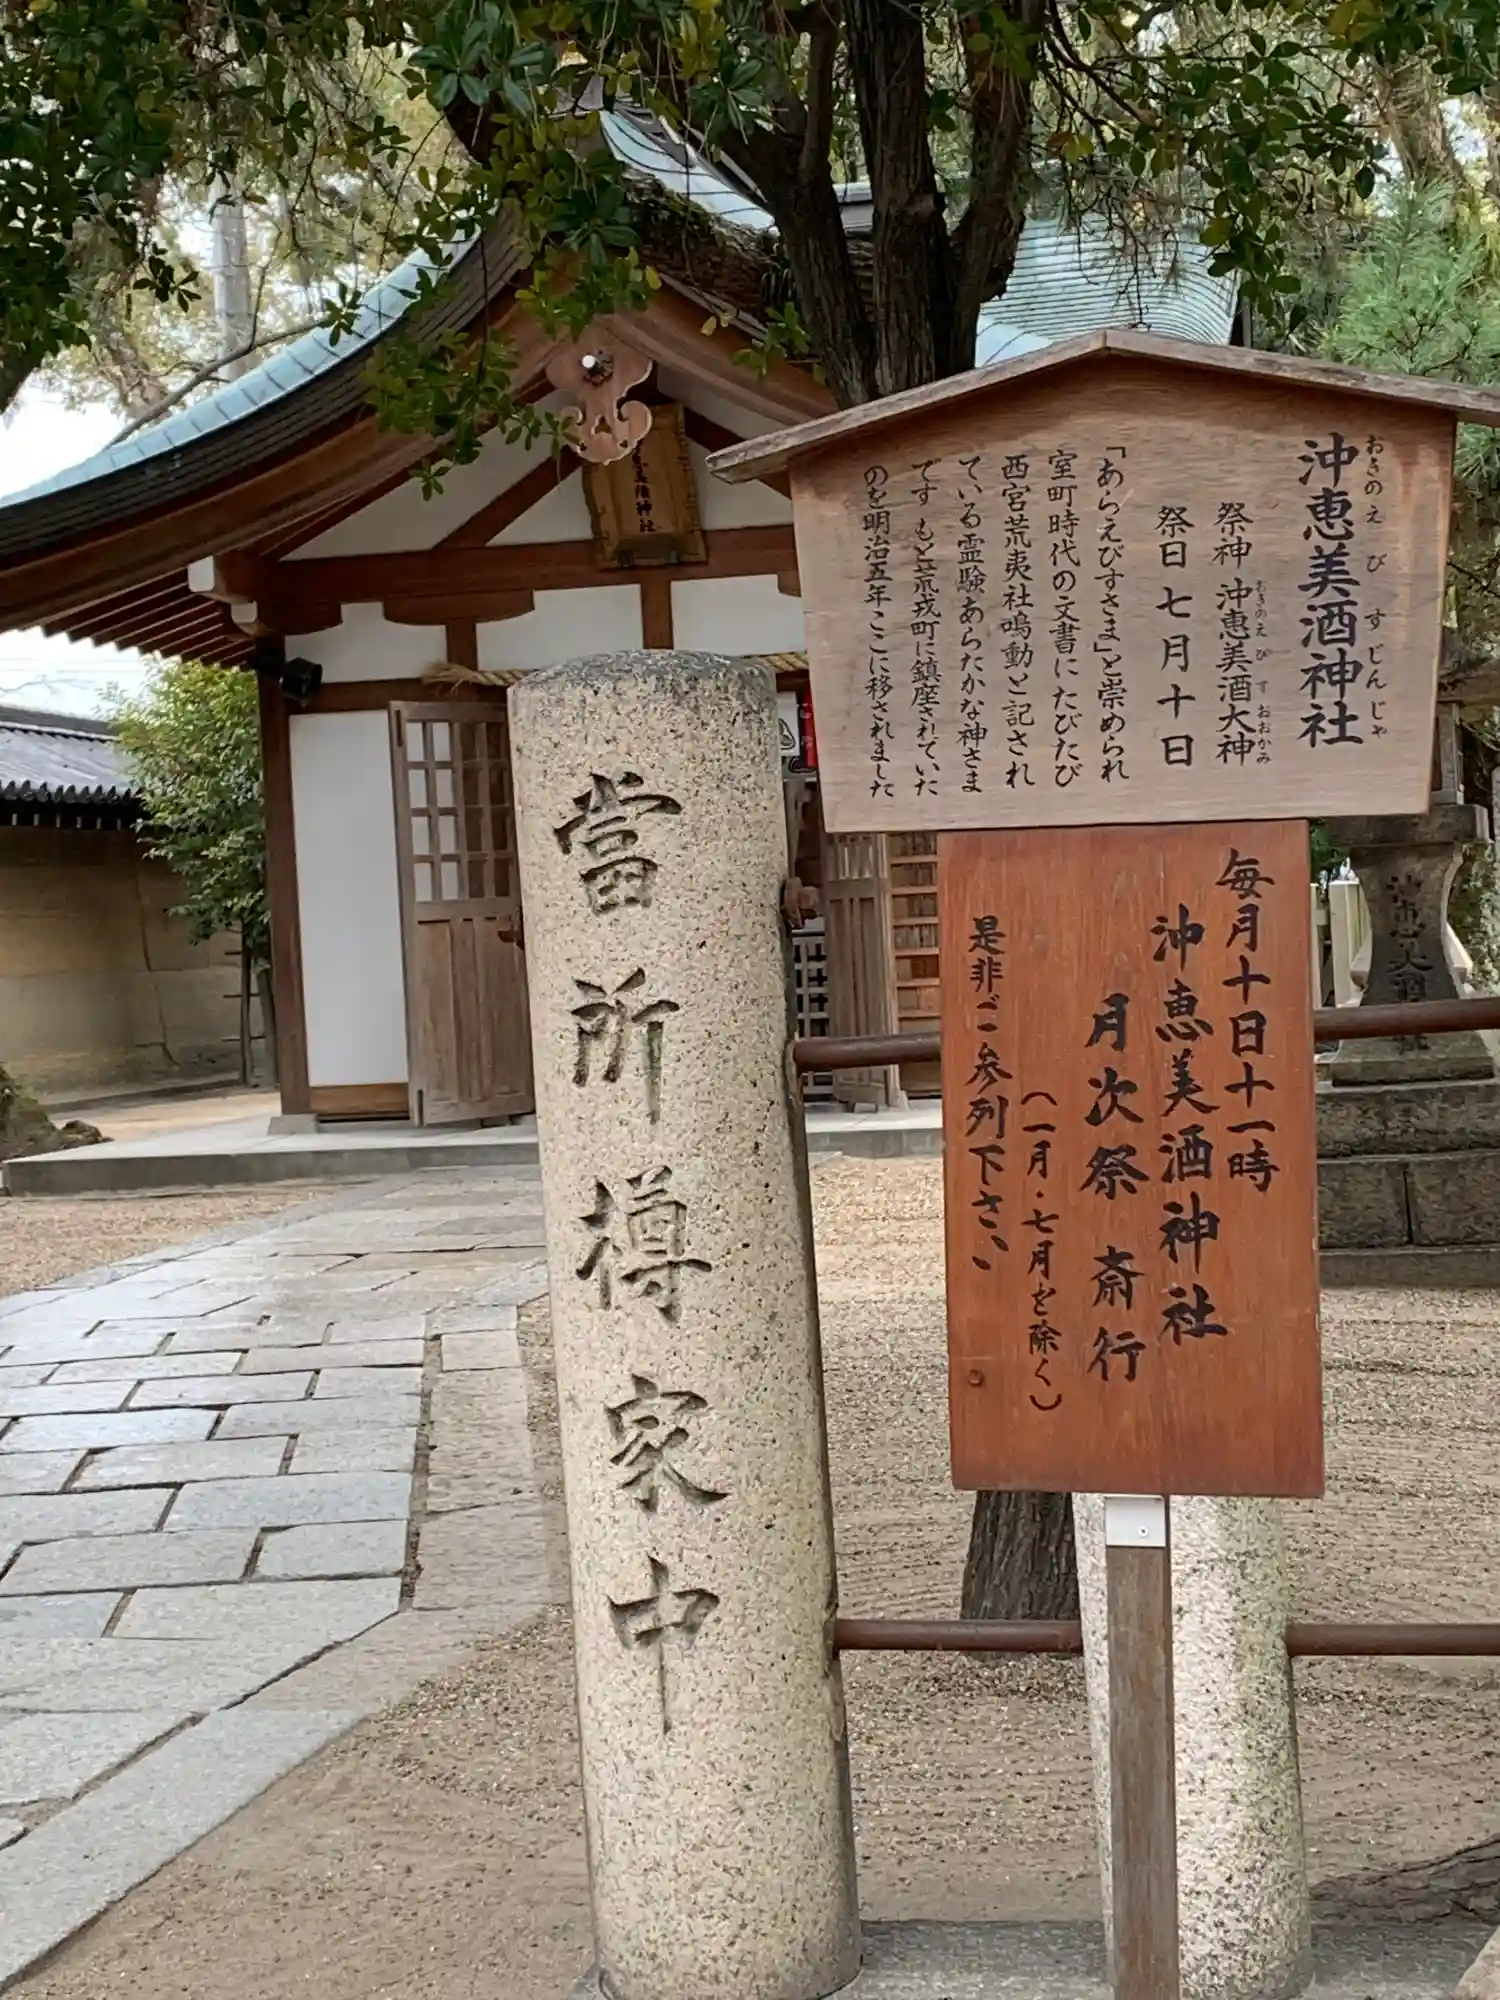 沖恵美酒神社
おきのえびすじんじゃ
祭神 沖恵美酒大神
おきのえびすおおかみ
祭日 七月十日
「あらえびすさま」と崇められ
室町時代の文書にたびたび
西宮荒夷社鳴動と記され
ている霊験あらたかな神さま
です もと荒戎町に鎮座されていた
のを明治五年ここに移されました
毎月十日十一時
沖恵美酒神社
月次祭 斎行
(一月・七月を除く)
是非ご参列下さい
當所樽家中